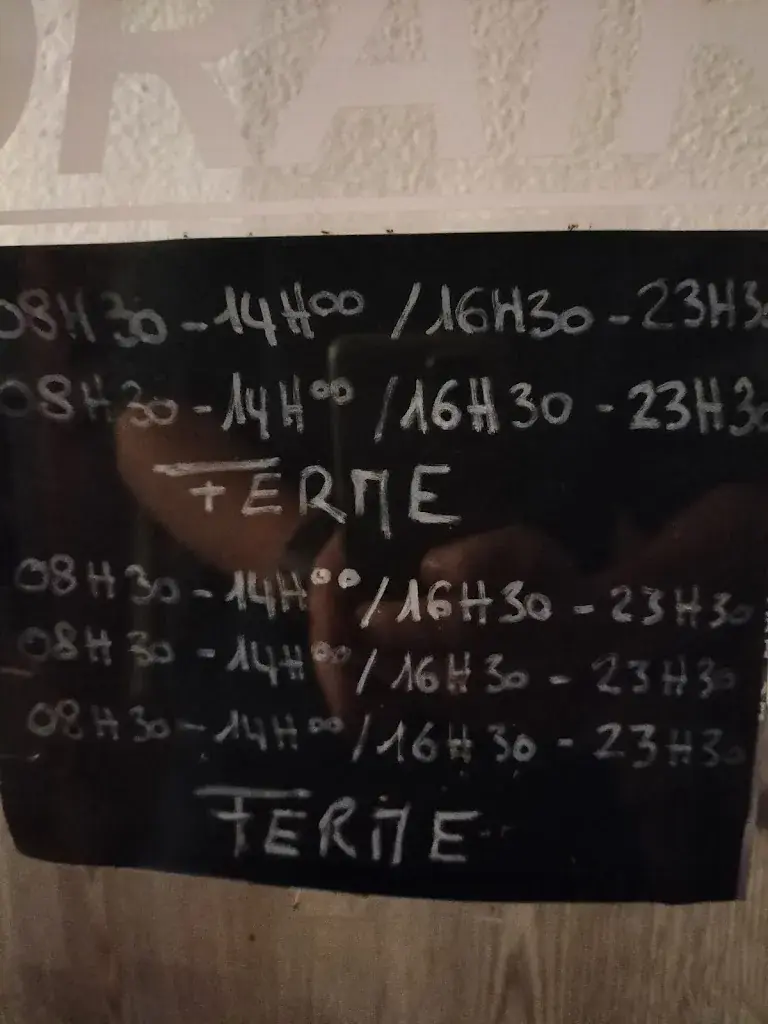 ORAIR
08H30 - 14H00 / 16H30 - 23H30
08H30 - 14H00 / 16H30 - 23H30
FERME
08H30 - 14H00 / 16H30 - 23H30
08H30 - 14H00 / 16H30 - 23H30
08H30 - 14H00 / 16H30 - 23H30
FERME